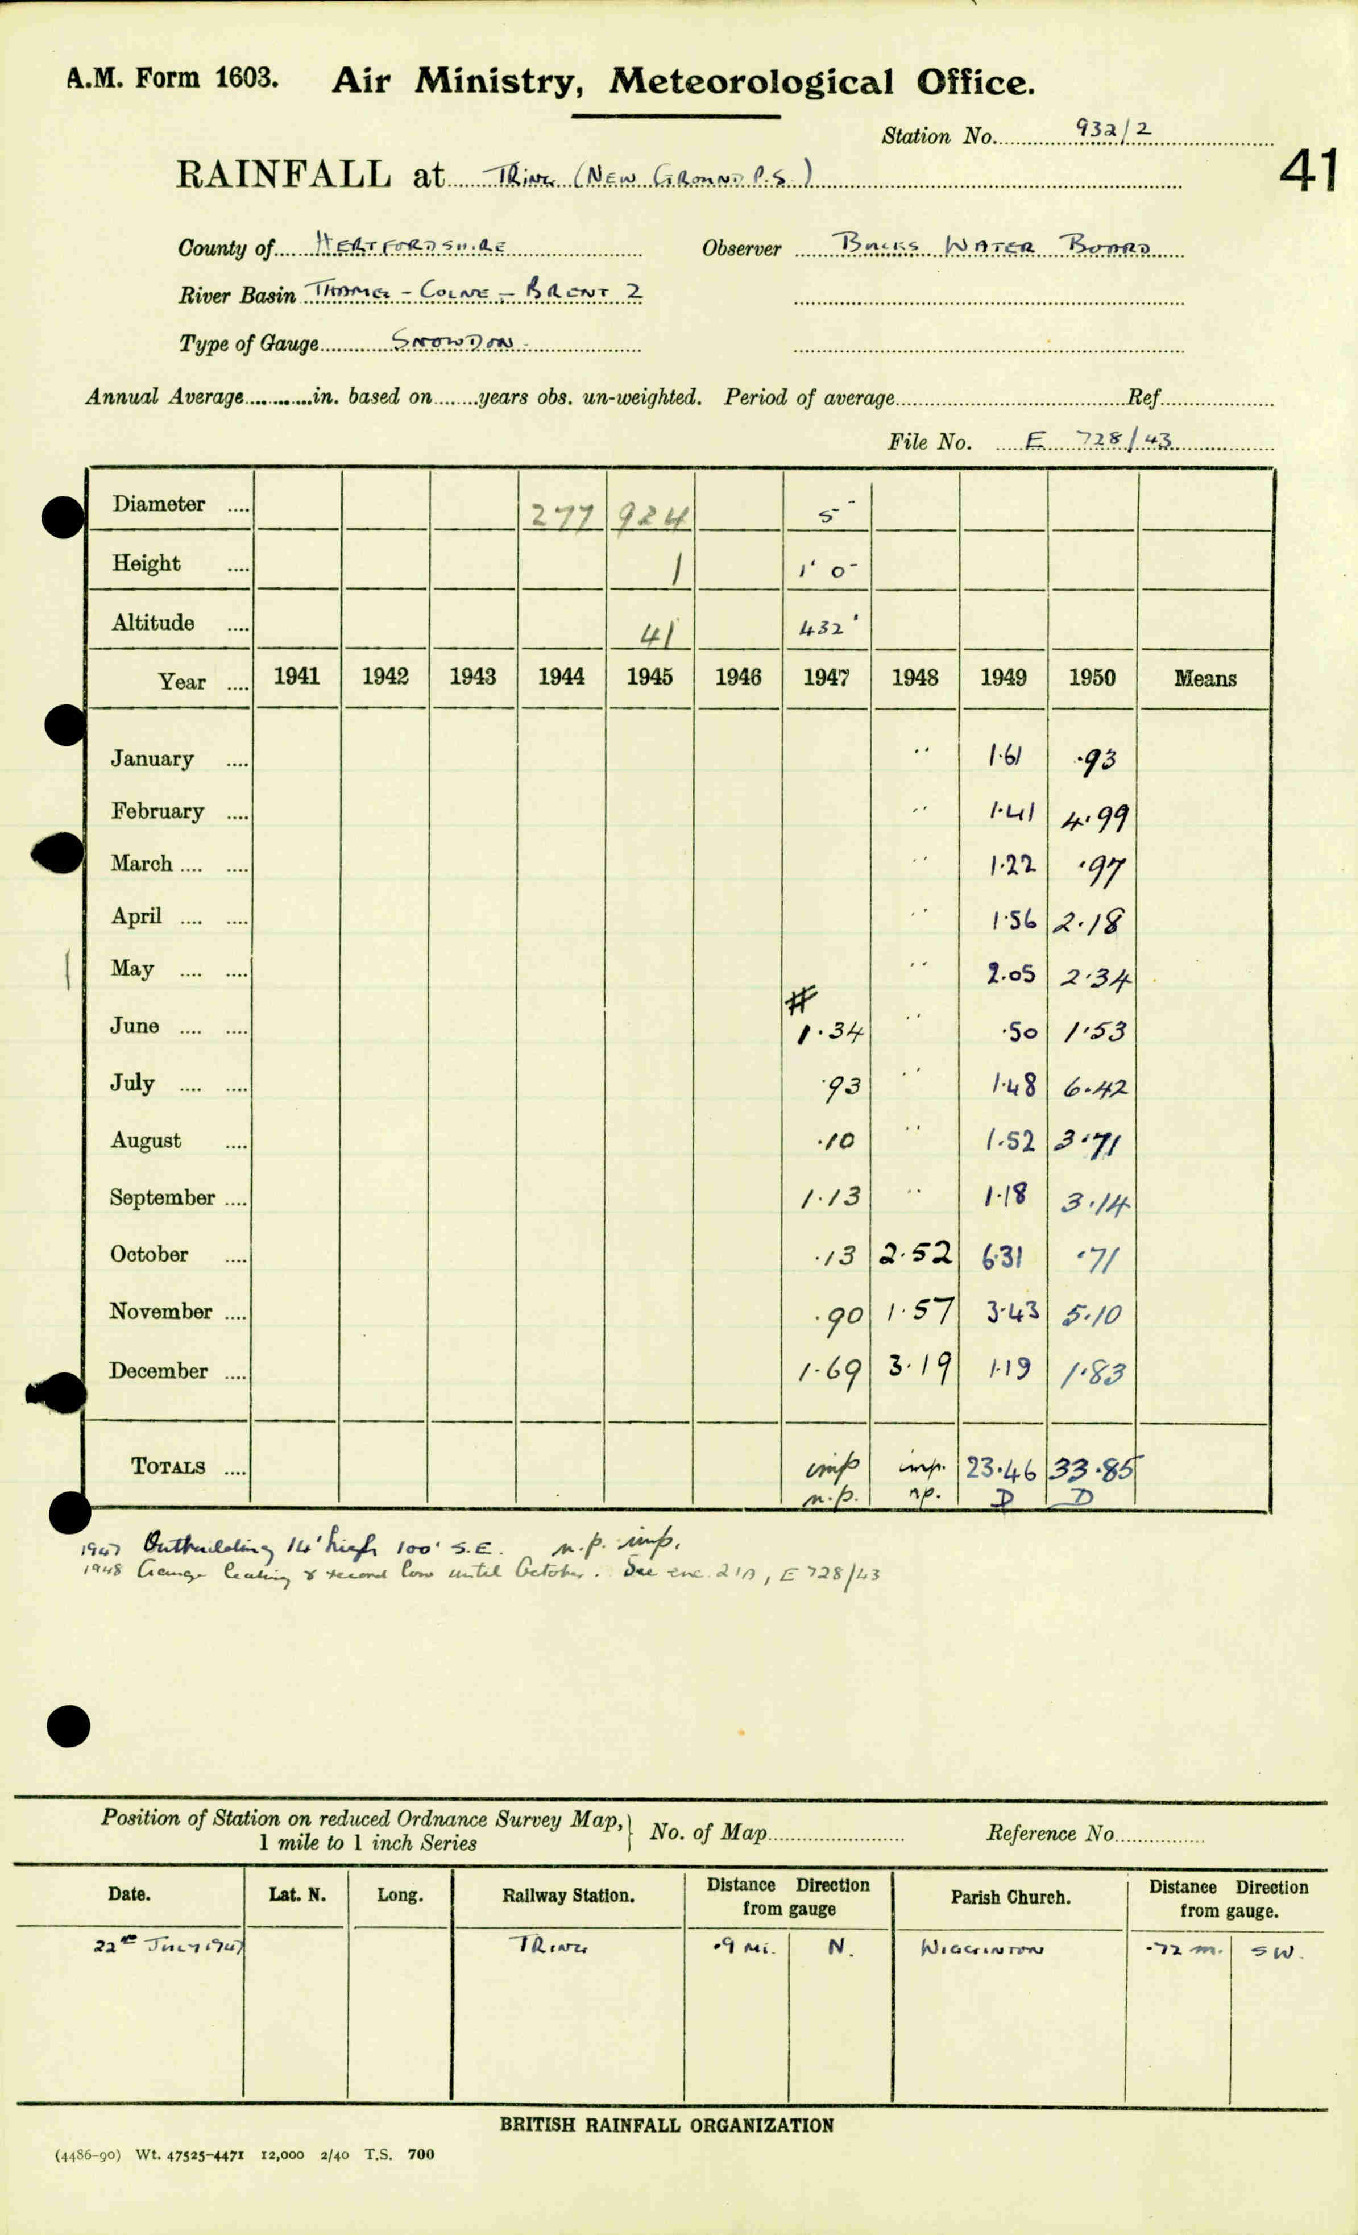 A.M. Form 1603. Air Ministry, Meteorological Office.
Station No. 932/2
41
RAINFALL at TRING (NEW GROUND P.S.)
County of HERTFORDSHIRE Observer BUCKS WATER BOARD
River Basin THAMES - COLNE - BRENT 2
Type of Gauge SNOWDON
Annual Average in. based on years obs. un-weighted. Period of average Ref.
File No. E 728/43
Diameter 277 924 5"
Height 1 1' 0"
Altitude 41 432'
Year 1941 1942 1943 1944 1945 1946 1947 1948 1949 1950 Means
January .. 1.61 .93
February .. 1.41 4.99
March .. 1.22 .97
April .. 1.56 2.18
May .. 2.05 2.34
#
June 1.34 .. .50 1.53
July .93 .. 1.48 6.42
August .10 .. 1.52 3.71
September 1.13 .. 1.18 3.14
October .13 2.52 6.31 .71
November .90 1.57 3.43 5.10
December 1.69 3.19 1.19 1.83
TOTALS imp imp. 23.46 33.85
n.p. n.p. D D
1947 Outbuilding 14' high 100' S.E. n.p. imp.
1948 Gauge leaking & record low until October. See enc. 21A, E 728/43
Position of Station on reduced Ordnance Survey Map, } No. of Map Reference No.
1 mile to 1 inch Series
Date. Lat. N. Long. Railway Station. Distance Direction from gauge Parish Church. Distance Direction from gauge.
22nd JULY 1947 TRING .9 MI. N. WIGGINTON .72 m. SW.
BRITISH RAINFALL ORGANIZATION
(4486-90) Wt. 47525-4471 12,000 2/40 T.S. 700